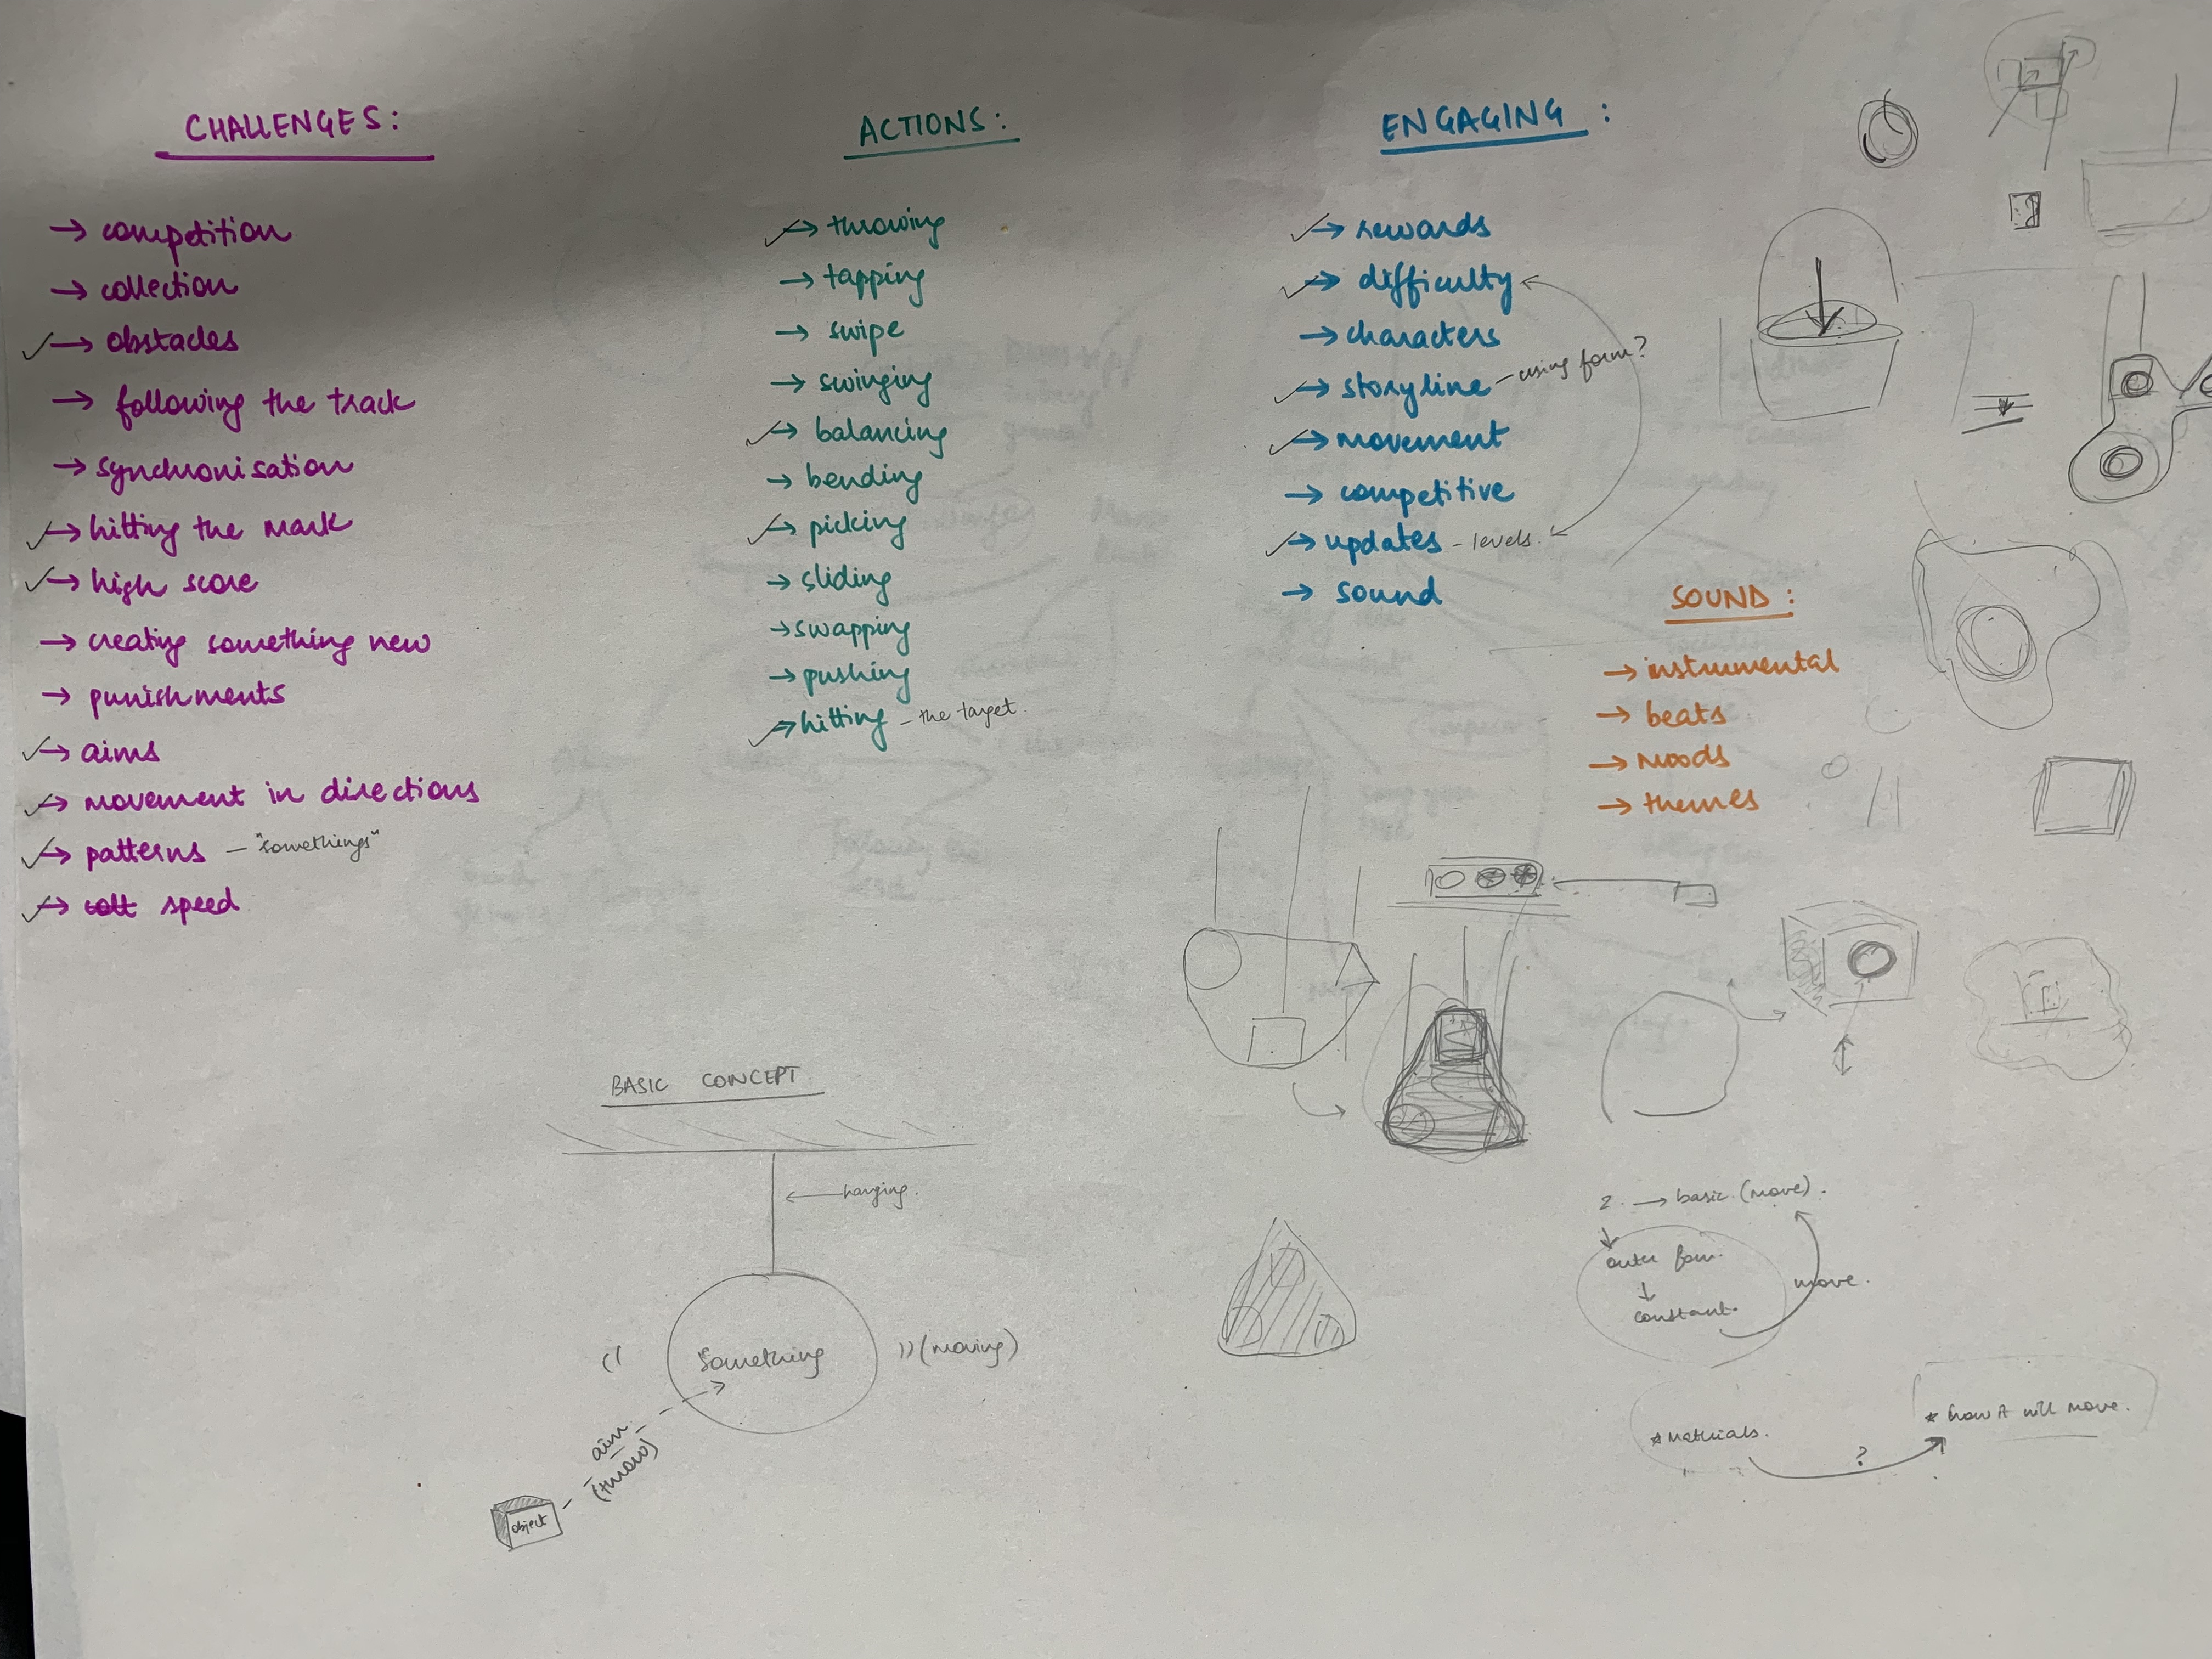 CHALLENGES:
→ competition
→ collection
✓→ obstacles
→ following the track
→ synchronisation
✓→ hitting the mark
✓→ high score
→ creating something new
→ punishments
✓→ aims
✓→ movement in directions
✓→ patterns - "somethings"
✓→ speed
ACTIONS:
✓→ throwing
→ tapping
→ swipe
→ swinging
✓→ balancing
→ bending
✓→ picking
→ sliding
→ swapping
→ pushing
✓→ hitting - the target.
ENGAGING :
✓→ rewards
✓→ difficulty
→ characters
✓→ storyline - using form?
✓→ movement
→ competitive
✓→ updates - levels.
→ sound
SOUND :
→ instrumental
→ beats
→ moods
→ themes
BASIC CONCEPT
← hanging.
something
(moving)
aim
(throw)
object
2. → basic (move).
outer form.
↓
constant.
move.
* Materials.
?
* how it will move.